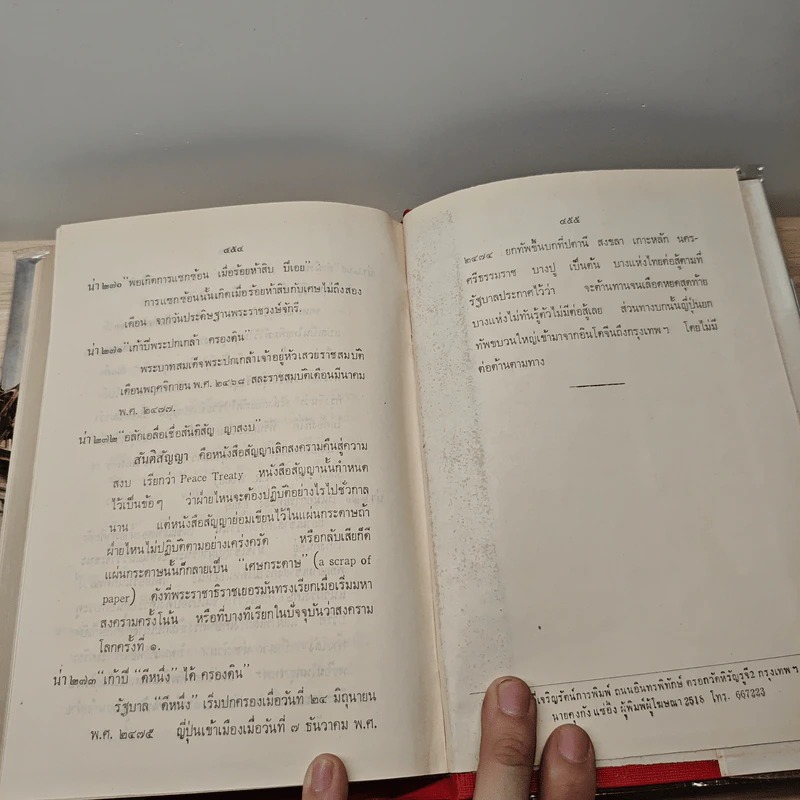 ๔๕๔
น่า ๒๗๐ "พอเกิดการแซกซ้อน เมื่อร้อยห้าสิบ ปีเอย"
การแซกซ้อนนั้นเกิดเมื่อร้อยห้าสิบกับเศษไม่ถึงสอง
เดือน จากวันประดิษฐานพระราชวงษ์จักรี.
น่า ๒๗๑ "เก้าปีพระปกเกล้า ครองดิน"
พระบาทสมเด็จพระปกเกล้าเจ้าอยู่หัวเสวยราชสมบัติ
เดือนพฤศจิกายน พ.ศ. ๒๔๖๘ สละราชสมบัติเดือนมีนาคม
พ.ศ. ๒๔๗๗.
น่า ๒๗๒ "อลักเอลื่อเชื่อสันติสัญ ญาสงบ"
สันติสัญญา คือหนังสือสัญญาเลิกสงครามคืนสู่ความ
สงบ เรียกว่า Peace Treaty หนังสือสัญญานั้นกำหนด
ไว้เป็นข้อ ๆ ว่าฝ่ายไหนจะต้องปฏิบัติอย่างไรไปชั่วกาล
นาน แต่หนังสือสัญญาย่อมเขียนไว้ในแผ่นกระดาษถ้า
ฝ่ายไหนไม่ปฏิบัติตามอย่างเคร่งครัด หรือกลับเสียก็ดี
แผ่นกระดาษนั้นก็กลายเป็น "เศษกระดาษ" (a scrap of
paper) ดังที่พระราชาธิราชเยอรมันทรงเรียกเมื่อเริ่มมหา
สงครามครั้งโน้น หรือที่บางทีเรียกในปัจจุบันว่าสงคราม
โลกครั้งที่ ๑.
น่า ๒๗๓ "เก้าปี "ดีหนึ่ง" ได้ ครองดิน"
รัฐบาล "ดีหนึ่ง" เริ่มปกครองเมื่อวันที่ ๒๔ มิถุนายน
พ.ศ. ๒๔๗๕ ญี่ปุ่นเข้าเมืองเมื่อวันที่ ๗ ธันวาคม พ.ศ.
๔๕๕
๒๔๗๔ ยกทัพขึ้นบกที่ปตานี สงขลา เกาะหลัก นคร-
ศรีธรรมราช บางปู เป็นต้น บางแห่งไทยต่อสู้ตามที่
รัฐบาลประกาศไว้ว่า จะต้านทานจนเลือดหยดสุดท้าย
บางแห่งไม่ทันรู้ตัวไม่มีต่อสู้เลย ส่วนทางบกนั้นญี่ปุ่นยก
ทัพขบวนใหญ่เข้ามาจากอินโดจีนถึงกรุงเทพ ฯ โดยไม่มี
ต่อต้านตามทาง
เจริญรัตน์การพิมพ์ ถนนอินทรพิทักษ์ ตรอกวัดหิรัญรูจี2 กรุงเทพ ฯ
นายคุงกัง แซ่อึ้ง ผู้พิมพ์ผู้โฆษณา 2518 โทร. 667223